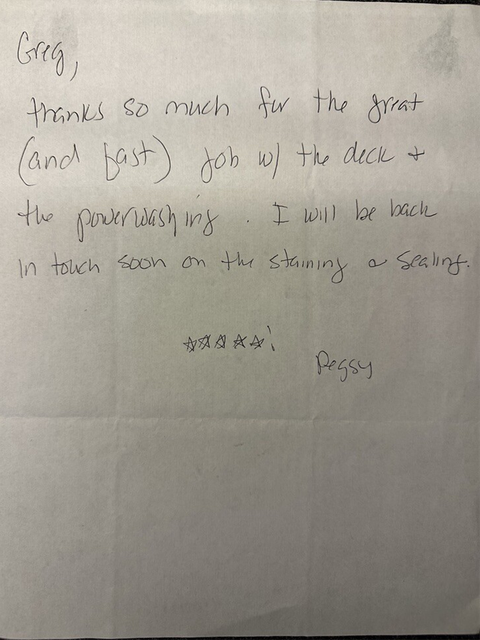 Greg,
thanks so much for the great
(and fast) job w/ the deck +
the powerwashing. I will be back
in touch soon on the staining & sealing.
☆☆☆☆☆!
Peggy